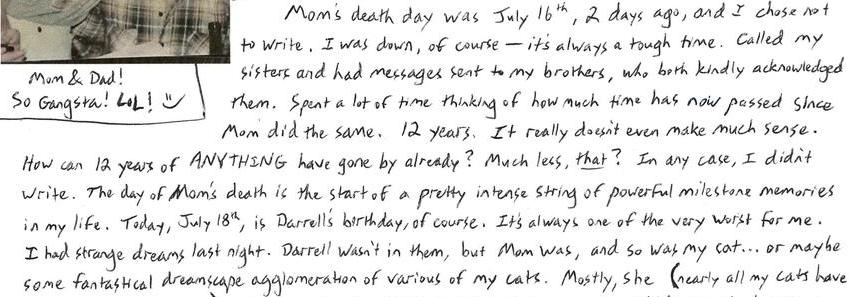 Mom's death day was July 16th, 2 days ago, and I chose not
to write. I was down, of course — it's always a tough time. Called my
sisters and had messages sent to my brothers, who both kindly acknowledged
Mom & Dad!
So Gangsta! LOL!
them. Spent a lot of time thinking of how much time has now passed since
Mom did the same. 12 years. It really doesn't even make much sense.
How can 12 years of ANYTHING have gone by already? Much less, that? In any case, I didn't
write. The day of Mom's death is the start of a pretty intense string of powerful milestone memories
in my life. Today, July 18th, is Darrell's birthday, of course. It's always one of the very worst for me.
I had strange dreams last night. Darrell wasn't in them, but Mom was, and so was my cat... or maybe
some fantastical dreamscape agglomeration of various of my cats. Mostly, she (nearly all my cats have